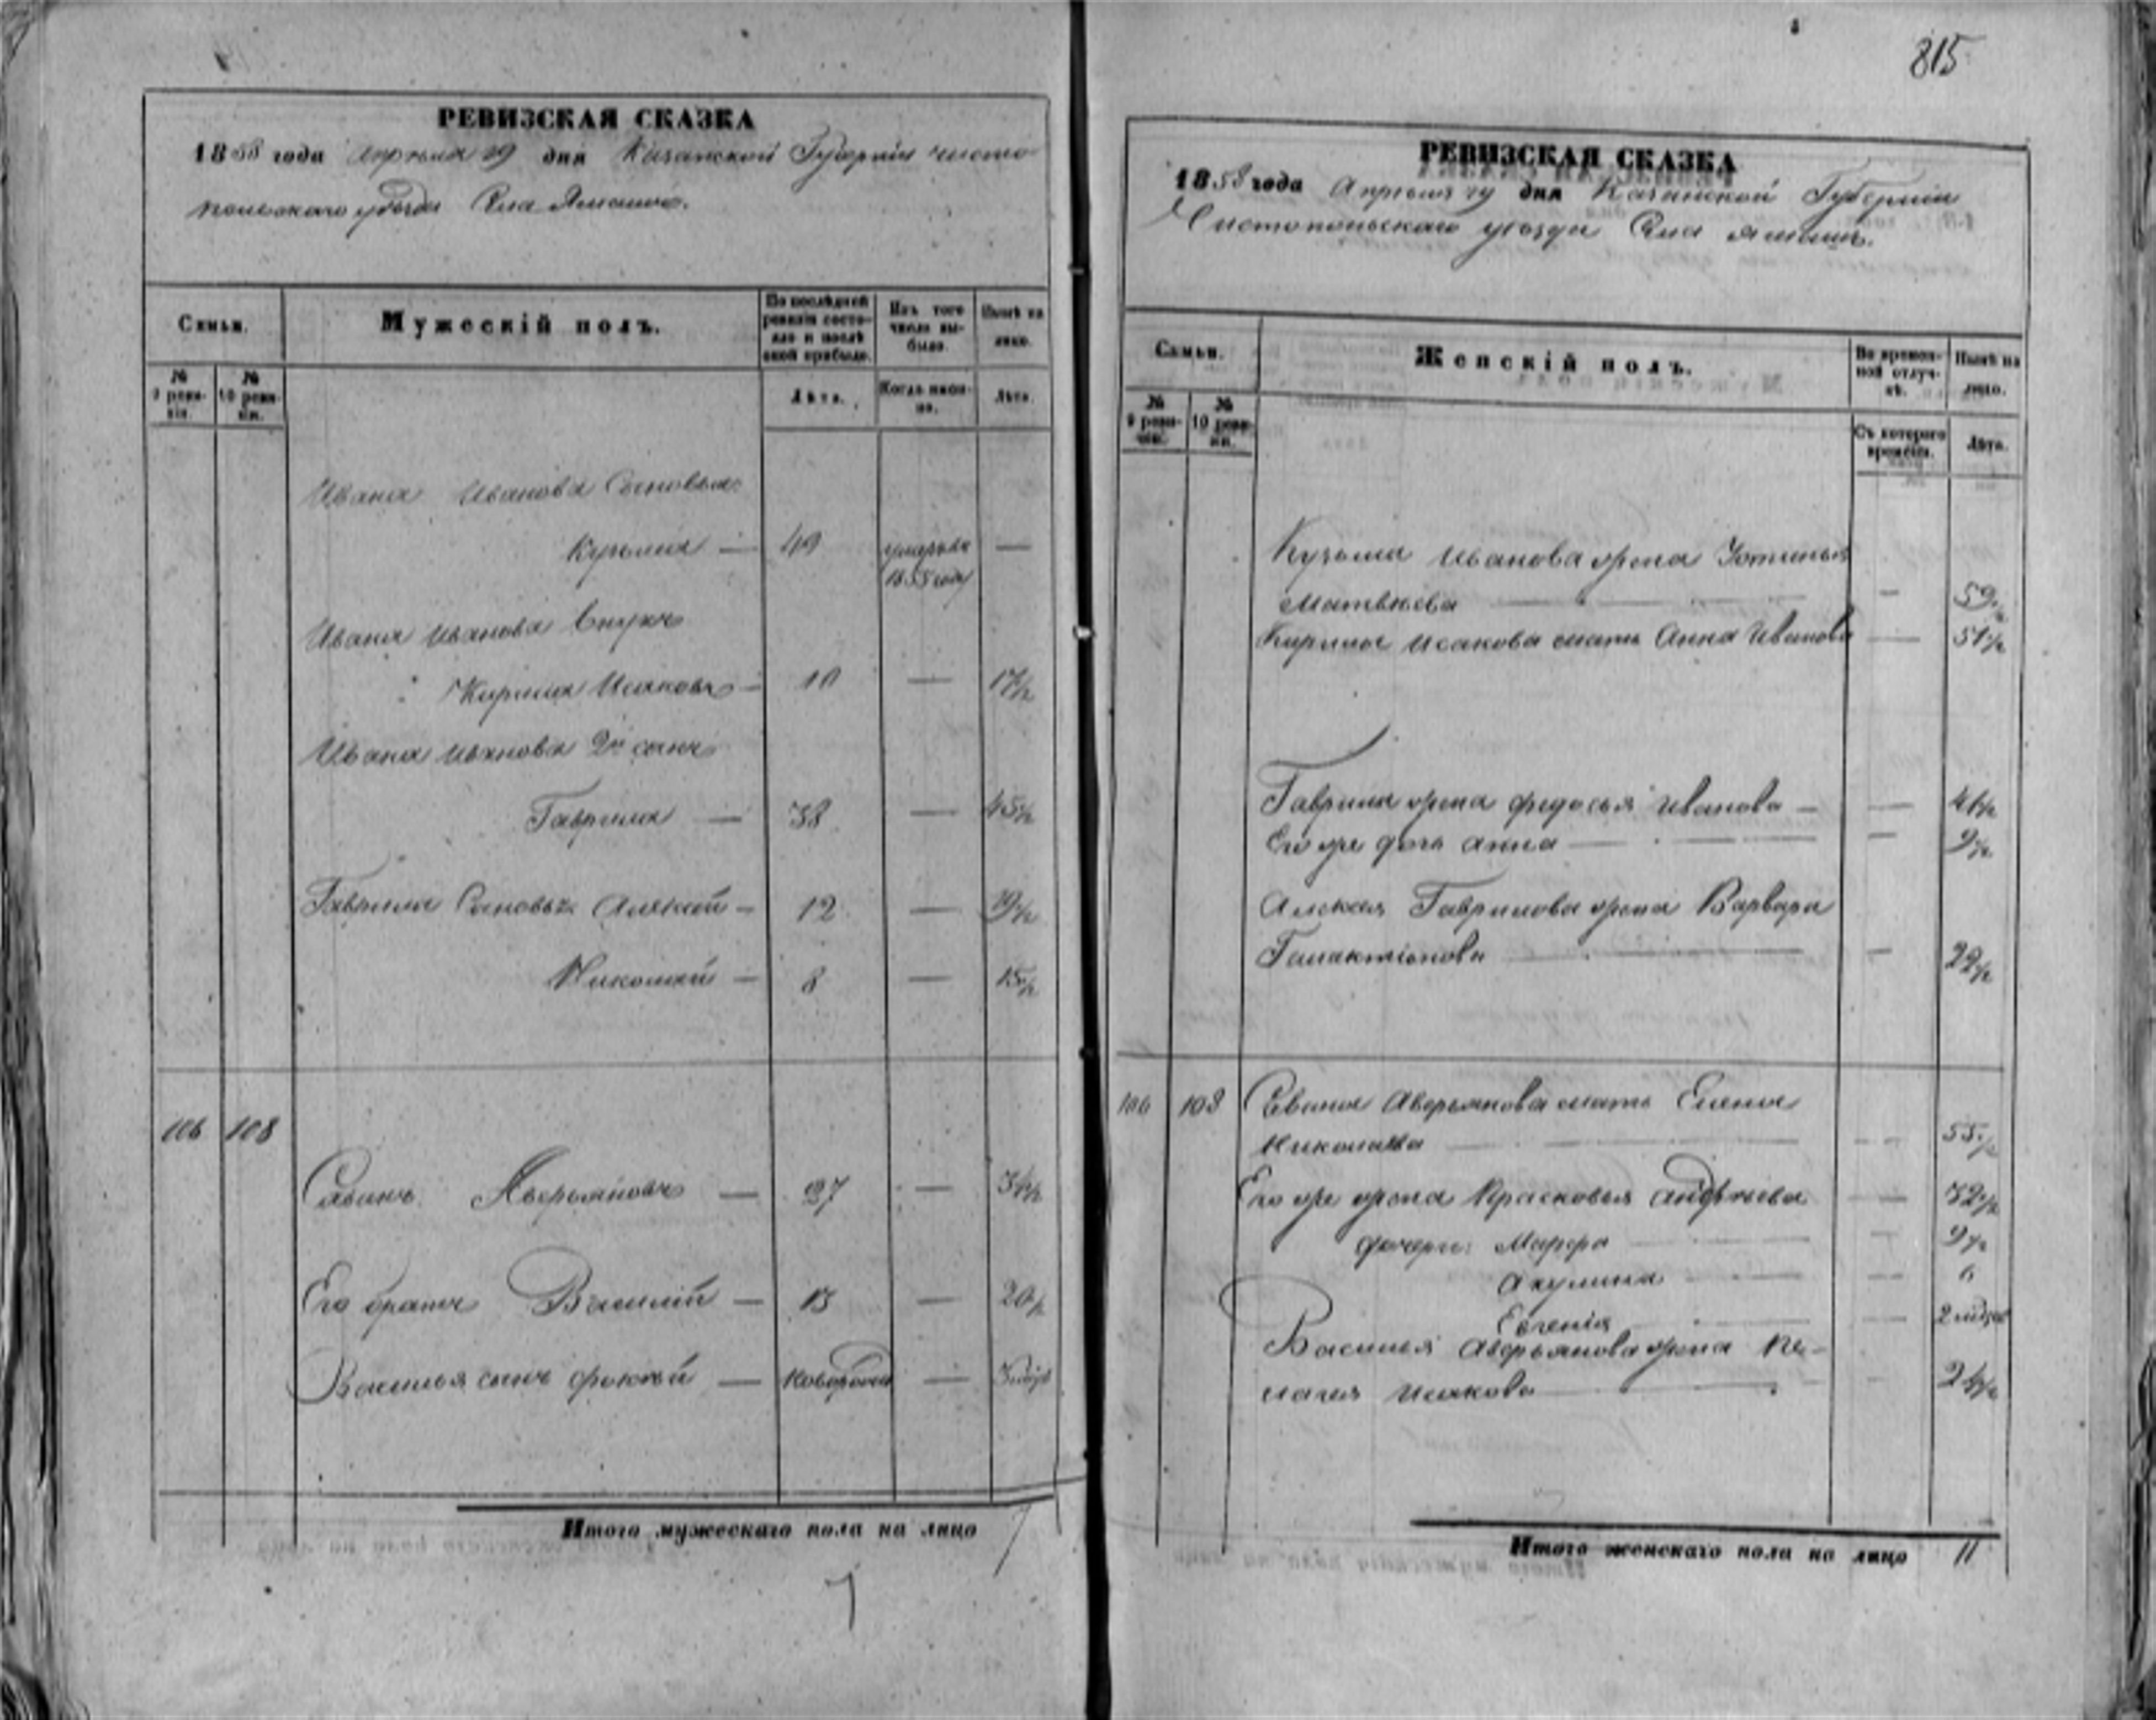 815
РЕВИЗСКАЯ СКАЗКА
1858 года Апрѣля 29 дня Казанской Губерніи чисто
польскаго уѣзда Села
Семьи.
Мужескій полъ.
По послѣдней ревизіи состояло и послѣ оной прибыло.
Изъ того числа выбыло.
Нынѣ на лицо.
№ 9 ревизіи.
№ 10 ревизіи.
Лѣта.
Когда именно.
Лѣта.
Ивана Иванова Сыновья:
Кузьма — 49 умеръ въ —
1855 году
Ивана Иванова Внукъ
Кирила Исаковъ — 10 — 17½
Ивана Иванова 2й сынъ
Гаврила — 38 — 45½
Гаврилы Сыновья Алексѣй — 12 — 19½
Николай — 8 — 15½
106 108
Савинъ Аверьяновъ — 27 — 34½
Его братъ Василій — 13 — 20½
Василья сынъ — —
Итого мужескаго пола на лицо 7
7
РЕВИЗСКАЯ СКАЗКА
1858 года Апрѣля 29 дня Казанской Губерніи
Чистопольскаго уѣзда Села
Семьи.
Женскій полъ.
Во временной отлучкѣ.
Нынѣ на лицо.
№ 9 ревизіи.
№ 10 ревизіи.
Съ котораго времени.
Лѣта.
Кузьмы Иванова жена Устинья
Матвѣева — — 59½
Кирилы Исакова мать Анна Иванова — 51½
Гаврилы жена Федосья Иванова — — 41½
Его же дочь Анна — — 9½
Алексѣя Гаврилова жена Варвара
Галактіонова — — 22½
106 108 Савина Аверьянова мать Елена
Николаева — — 55½
Его же жена Прасковья Андрѣева — 32½
дочери: Марфа — — 9½
Акулина — — 6
Евгенія — — 2
Василья Аверьянова жена Пе-
лагея Исакова — — 24½
Итого женскаго пола на лицо 11